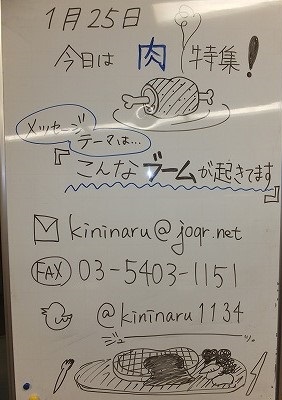 1月25日
今日は 肉 特集!
メッセージ
テーマは…
『こんなブームが起きてます』
kininaru@joqr.net
FAX 03-5403-1151
@kininaru1134
ジュー